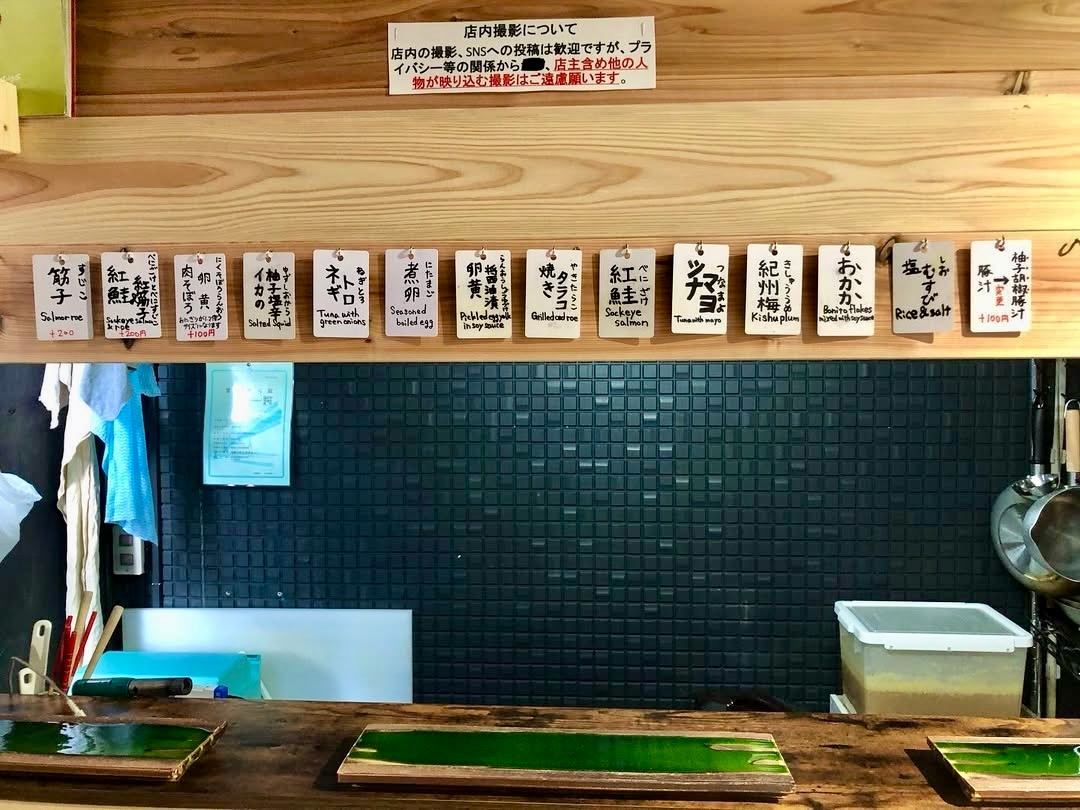 店内撮影について
店内の撮影、SNSへの投稿は歓迎ですが、プラ
イバシー等の関係から、店主含め他の人
物が映り込む撮影はご遠慮願います。
すじこ
筋子
Salmon roe
+200
紅鮭
紅筋子
Sockeye salmon
& roe
+200円
卵黄
肉そぼろ
+100円
ゆずしおから
柚子塩辛
イカの
Salted Squid
ねぎとろ
トロ
ネギ
Tuna with
green onions
にたまご
煮卵
Seasoned
boiled egg
醤油漬
卵黄
Pickled egg yolk
in soy sauce
やきたらこ
タラコ
焼き
Grilled cod roe
べにざけ
紅鮭
Sockeye
salmon
つなまよ
マヨ
ツナ
Tuna with mayo
きしゅううめ
紀州梅
Kishu plum
おかか
Bonito flakes
mixed with soy sauce
しお
むすび
塩
Rice & salt
柚子胡椒豚汁
→変更
豚汁
+100円